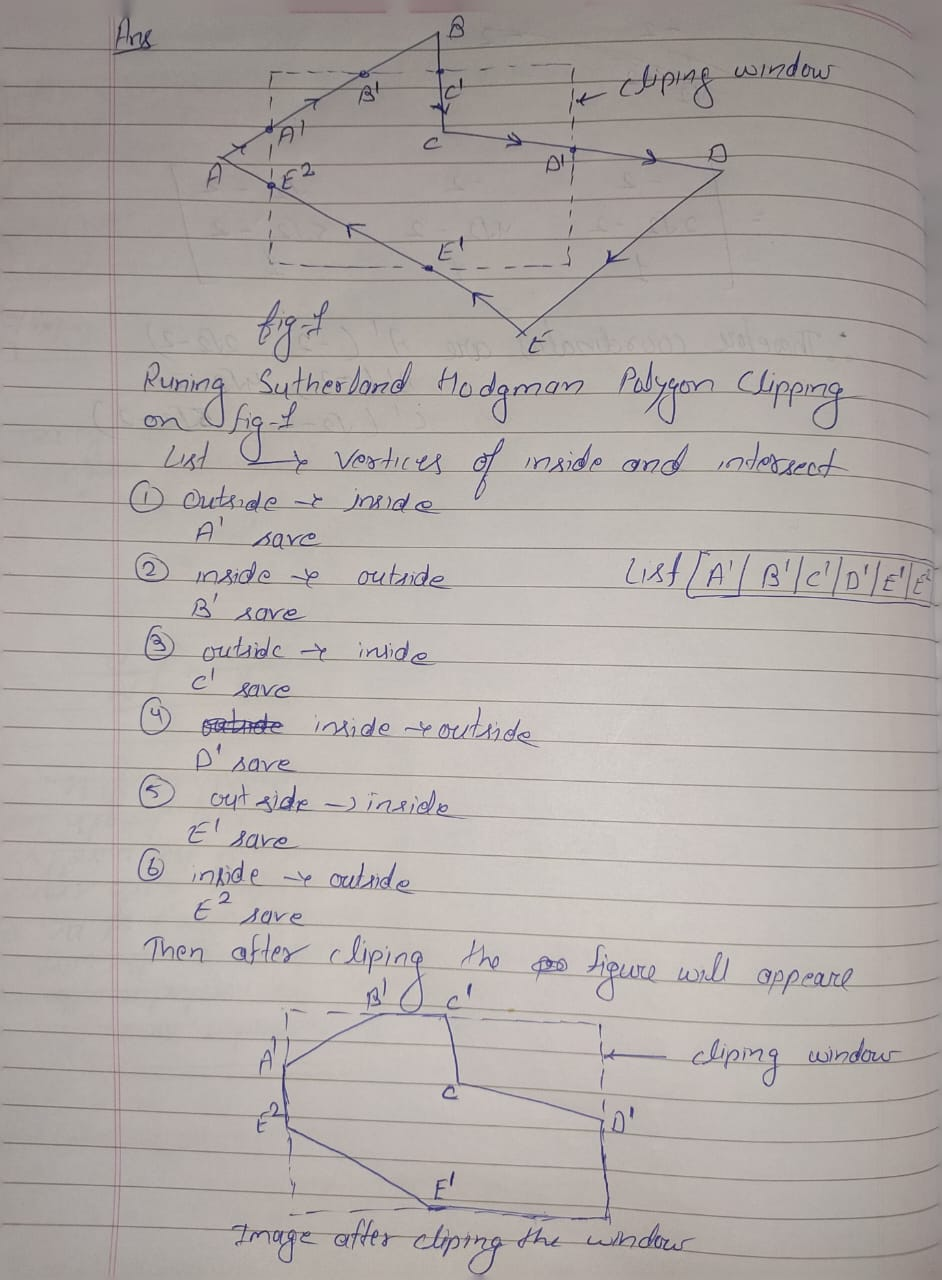 Ans
B
B'
C'
cliping window
A'
C
D'
D
A
E²
E'
E
fig-1
Runing Sutherland Hodgman Polygon Clipping
on fig-1
List → vertices of inside and intersect
① Outside → inside
A' save
② inside → outside
List [A'| B'|C'|D'|E'|E²
B' save
③ outside → inside
C' save
④ inside → outside
D' save
⑤ out side → inside
E' save
⑥ inside → outside
E² save
Then after cliping the figure will appeare
B' C'
A'
cliping window
C
E²
D'
E'
Image after cliping the window